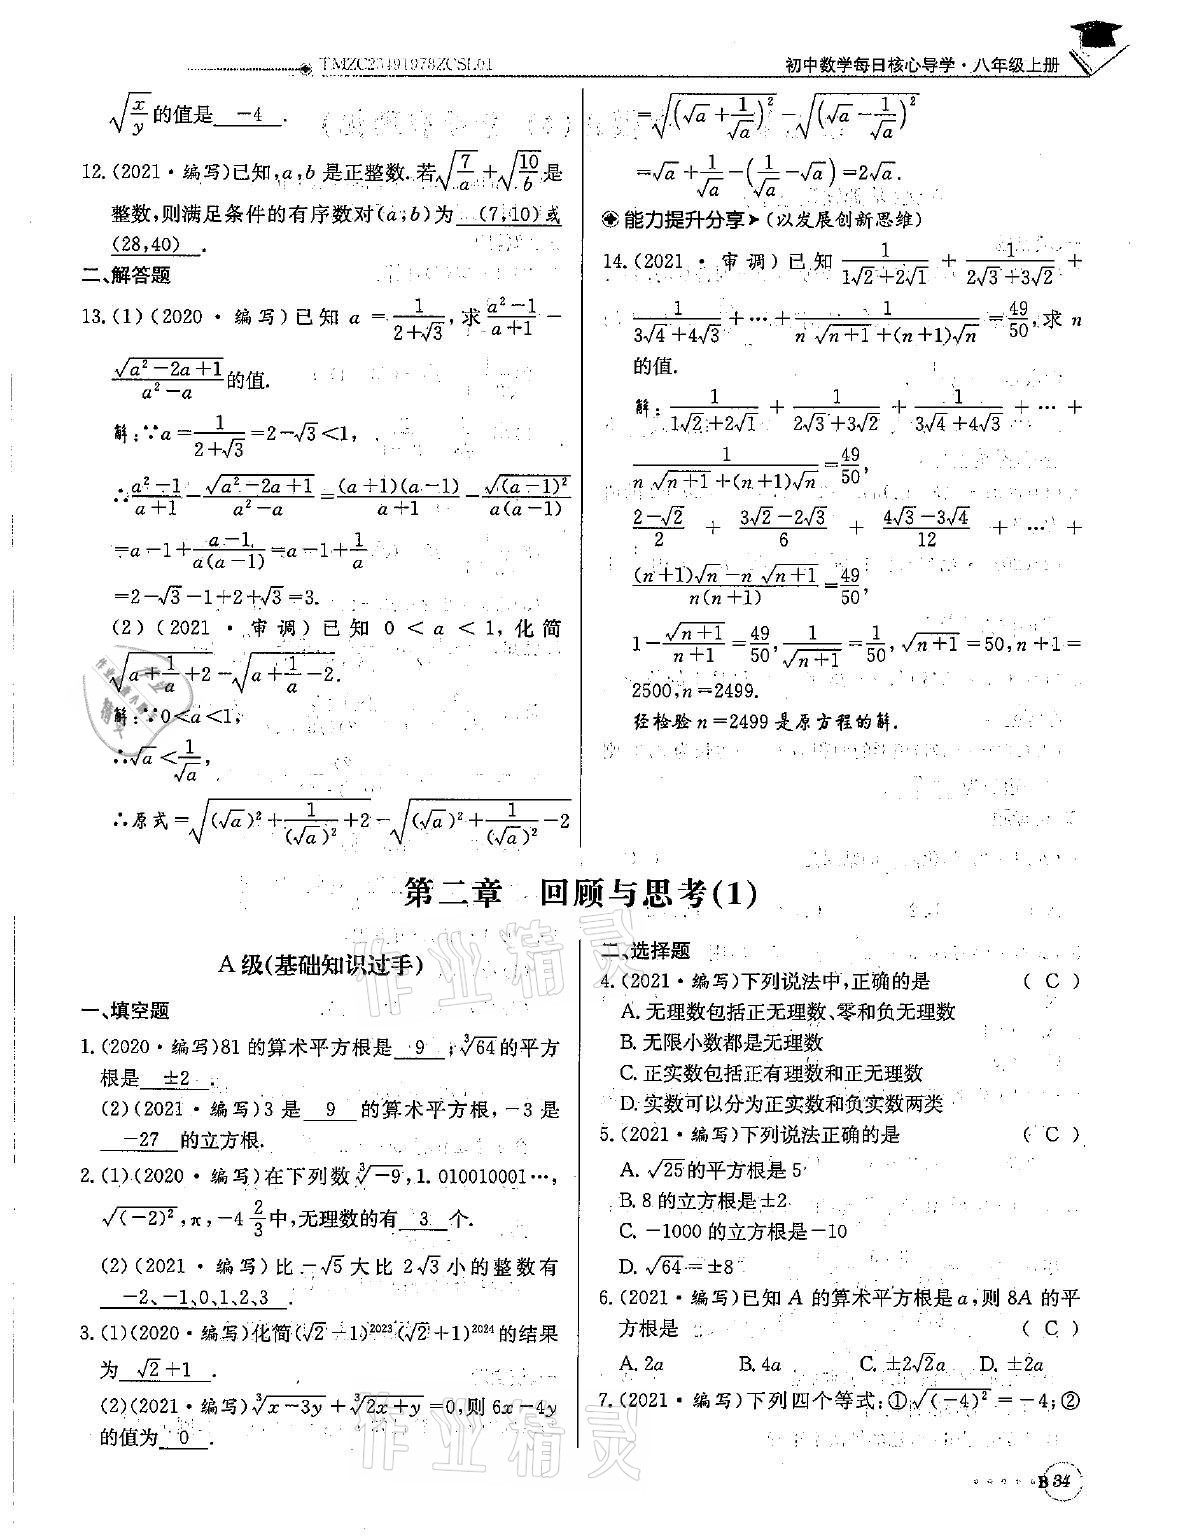 TMZC23491978ZCSL01
初中数学每日核心导学·八年级上册
√(x/y)的值是 -4 .
12.(2021·编写)已知,a,b是正整数.若√(7/a)+√(10/b)是
整数,则满足条件的有序数对(a,b)为 (7,10)或
(28,40) .
二、解答题
13.(1)(2020·编写)已知a=1/(2+√3),求(a²-1)/(a+1)-
√(a²-2a+1)/(a²-a)的值.
解:∵a=1/(2+√3)=2-√3<1,
∴(a²-1)/(a+1)-√(a²-2a+1)/(a²-a)=(a+1)(a-1)/(a+1)-√((a-1)²)/(a(a-1))
=a-1+(a-1)/(a(a-1))=a-1+1/a
=2-√3-1+2+√3=3.
(2)(2021·审调)已知0<a<1,化简
√(a+1/a+2)-√(a+1/a-2).
解:∵0<a<1,
∴√a<1/√a,
∴原式=√((√a)²+1/(√a)²+2)-√((√a)²+1/(√a)²-2)
=√((√a+1/√a)²)-√((√a-1/√a)²)
=√a+1/√a-(1/√a-√a)=2√a.
能力提升分享➤(以发展创新思维)
14.(2021·审调)已知1/(1√2+2√1)+1/(2√3+3√2)+
1/(3√4+4√3)+…+1/(n√(n+1)+(n+1)√n)=49/50,求n
的值.
解:1/(1√2+2√1)+1/(2√3+3√2)+1/(3√4+4√3)+…+
1/(n√(n+1)+(n+1)√n)=49/50,
(2-√2)/2+(3√2-2√3)/6+(4√3-3√4)/12+…+
((n+1)√n-n√(n+1))/(n(n+1))=49/50,
1-√(n+1)/(n+1)=49/50,1/√(n+1)=1/50,√(n+1)=50,n+1=
2500,n=2499.
经检验n=2499是原方程的解.
第二章 回顾与思考(1)
A级(基础知识过手)
一、填空题
1.(2020·编写)81的算术平方根是 9 ;³√64的平方
根是 ±2 .
(2)(2021·编写)3是 9 的算术平方根,-3是
-27 的立方根.
2.(1)(2020·编写)在下列数³√-9,1.010010001…,
√(-2)²,π,-4 2/3中,无理数的有 3 个.
(2)(2021·编写)比-√5大比2√3小的整数有
-2、-1、0、1、2、3 .
3.(1)(2020·编写)化简(√2-1)²⁰²³(√2+1)²⁰²⁴的结果
为 √2+1 .
(2)(2021·编写)³√(x-3y)+³√(2x+y)=0,则6x-4y
的值为 0 .
二、选择题
4.(2021·编写)下列说法中,正确的是 ( C )
A.无理数包括正无理数、零和负无理数
B.无限小数都是无理数
C.正实数包括正有理数和正无理数
D.实数可以分为正实数和负实数两类
5.(2021·编写)下列说法正确的是 ( C )
A.√25的平方根是5
B.8的立方根是±2
C.-1000的立方根是-10
D.√64=±8
6.(2021·编写)已知A的算术平方根是a,则8A的平
方根是 ( C )
A.2a B.4a C.±2√2a D.±2a
7.(2021·编写)下列四个等式:①√(-4)²=-4;②
B 34
作业精灵
作业精灵